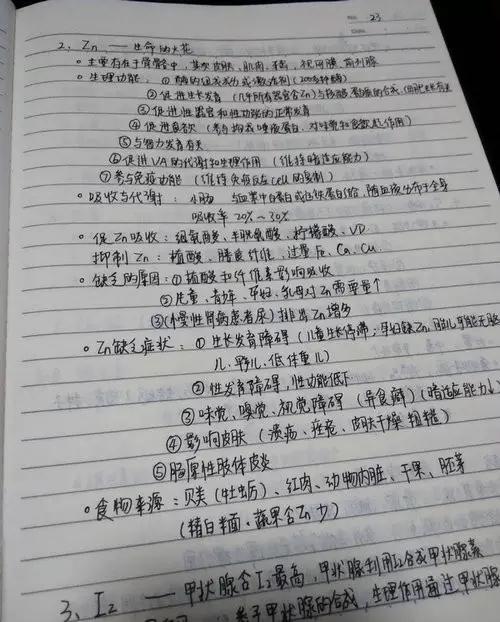 23
2、Zn —— 生命的火花
· 主要存在于骨骼中，其次皮肤、肌肉、视网膜、前列腺
· 生理功能：①酶的组成成分或激活剂（200多种酶）
②促进生长发育（几乎所有器官含Zn）与核酸、蛋白质的合成、
③促进性器官和性功能的正常发育
④促进食欲（参与构成唾液蛋白，对味觉和食欲起作用）
⑤与智力发育有关
⑥促进VA的代谢和生理作用（维持暗适应能力）
⑦参与免疫功能（维持免疫反应cell的复制）
· 吸收与代谢：小肠 与血浆中白蛋白或运铁蛋白结合，随血液分布于全身
吸收率20%~30%
· 促Zn吸收：组氨酸、半胱氨酸、柠檬酸、VD
抑制Zn：植酸、膳食纤维、过量Fe、Ca、Cu
· 缺乏的原因：①植酸和纤维素影响吸收
②儿童、青年、孕妇、乳母对Zn需要量个
③(慢性肾病患者尿)排出Zn增多
· Zn缺乏症状：①生长发育障碍（儿童生长停滞；孕妇缺Zn，胎儿可能无脑
儿、畸儿、低体重儿）
②性发育障碍，性功能低下
③味觉、嗅觉、视觉障碍（异食癖）（暗适应能力↓）
④影响皮肤（溃疡、痤疮、皮肤干燥、粗糙）
⑤肠原性肢体皮炎
· 食物来源：贝类（牡蛎）、红肉、动物内脏、干果、胚芽
（精白米面、蔬果含Zn少）
3、I₂ —— 甲状腺含I₂最高，甲状腺利用I₂合成甲状腺素
参于甲状腺素的合成，生理作用通过甲状腺